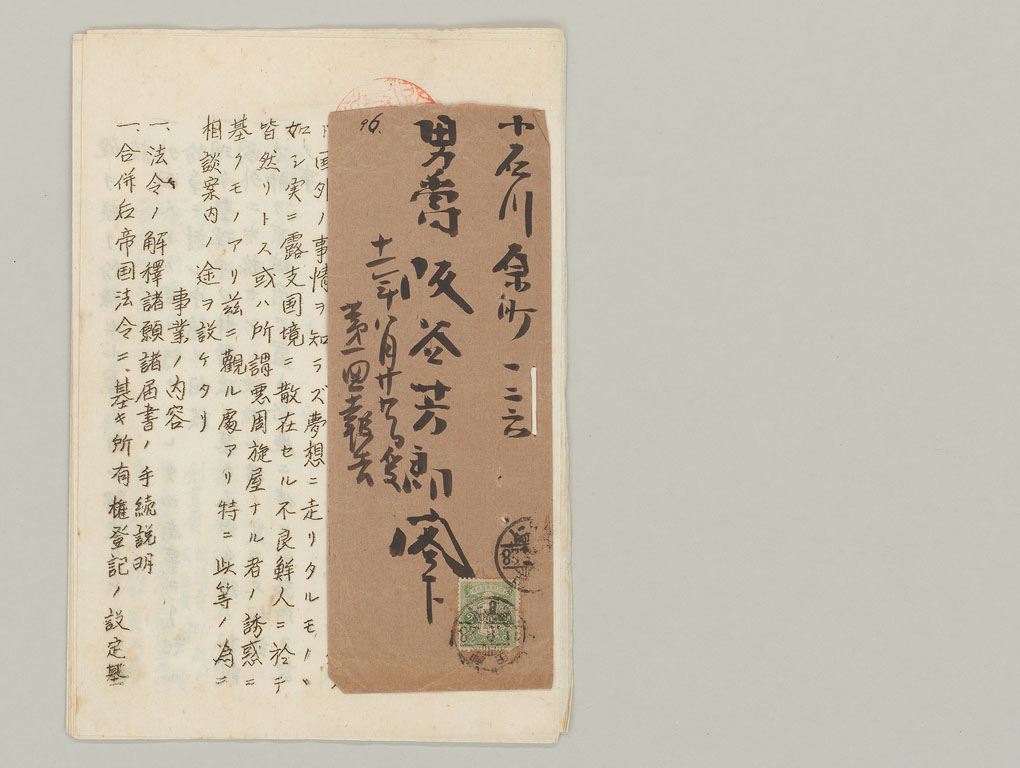 小石川原町一二六
男爵 阪谷芳郎 閣下
十二年八月廿九日受
第一回報告
96.
国外ノ事情ヲ知ラズ夢想ニ走リタルモノヽ
如シ実ニ露支国境ニ散在セル不良鮮人ニ於テ
皆然リトス或ハ所謂悪周旋屋ナル者ノ誘惑ニ
基クモノアリ茲ニ觀ル處アリ特ニ此等ノ為ニ
相談案内ノ途ヲ設ケタリ
事業ノ内容
一、法令ノ解釋諸願諸届書ノ手続説明
一、合併后帝国法令ニ基キ所有権登記ノ設定